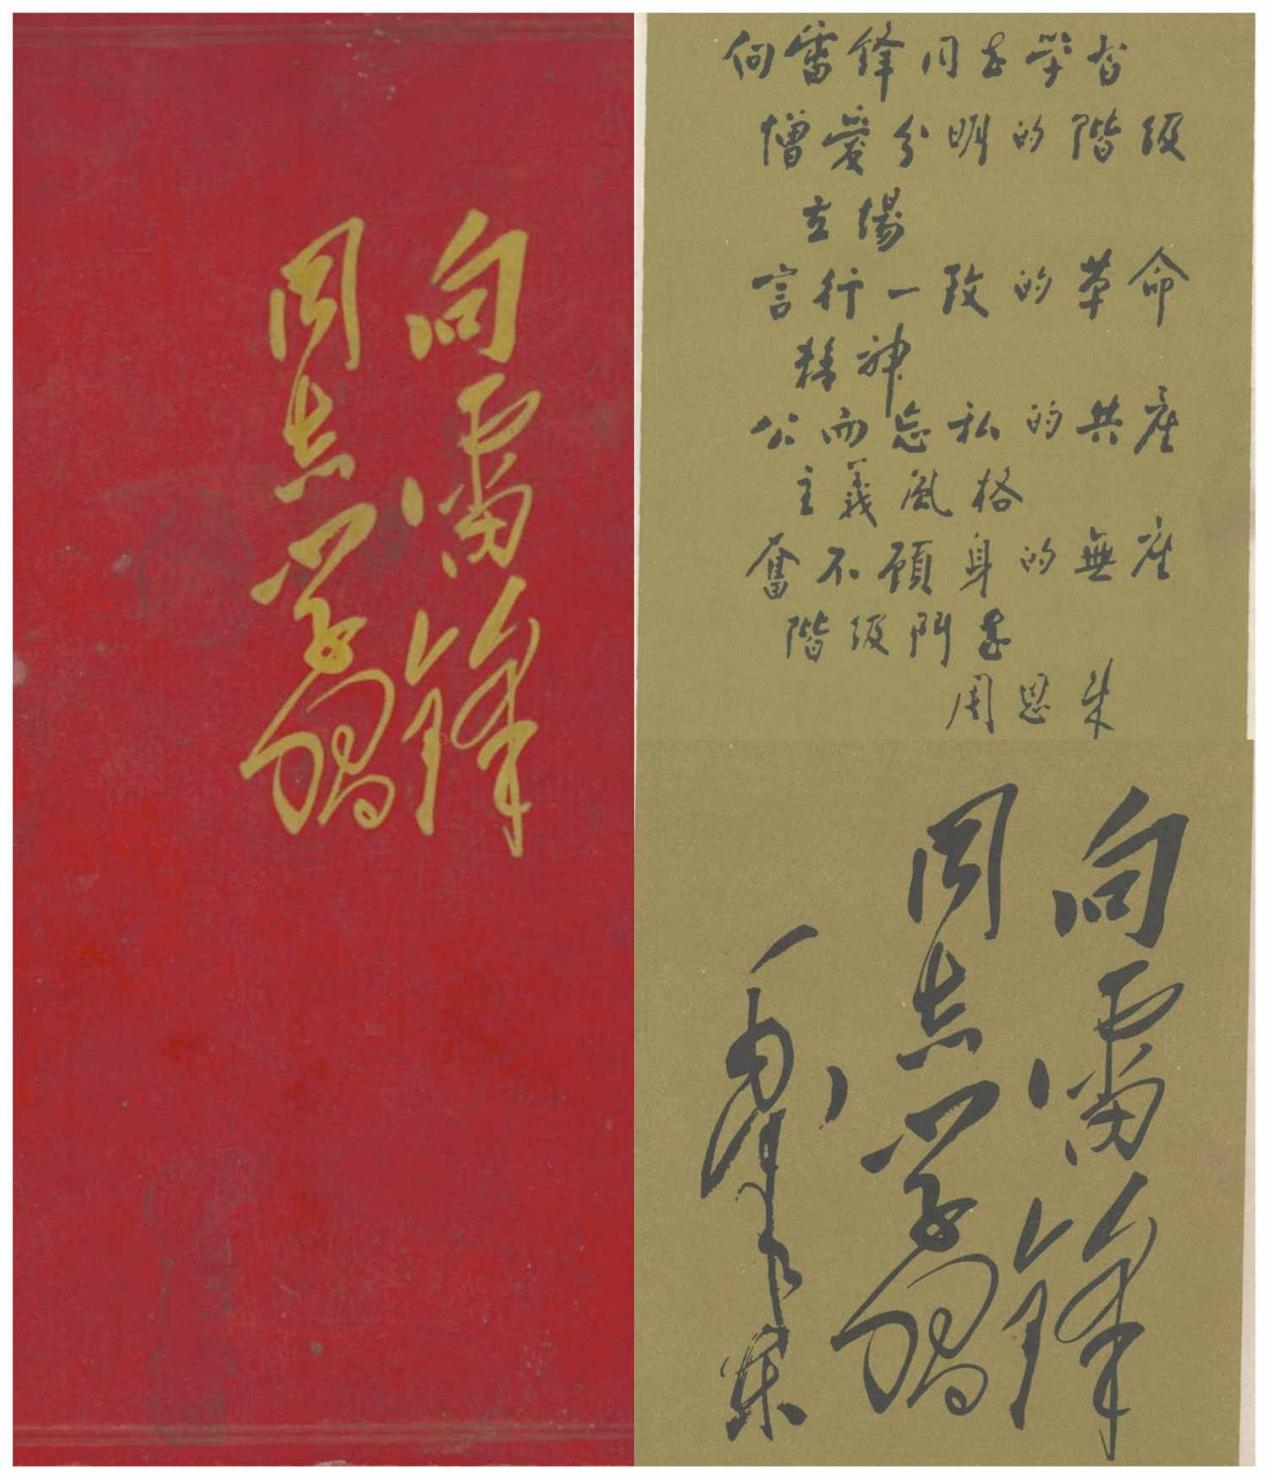 向雷锋
同志学习
向雷锋同志学習
憎愛分明的階级
立場
言行一致的革命
精神
公而忘私的共産
主義風格
奮不顧身的無産
階级鬥志
周恩来
向雷锋
同志学习
毛泽东